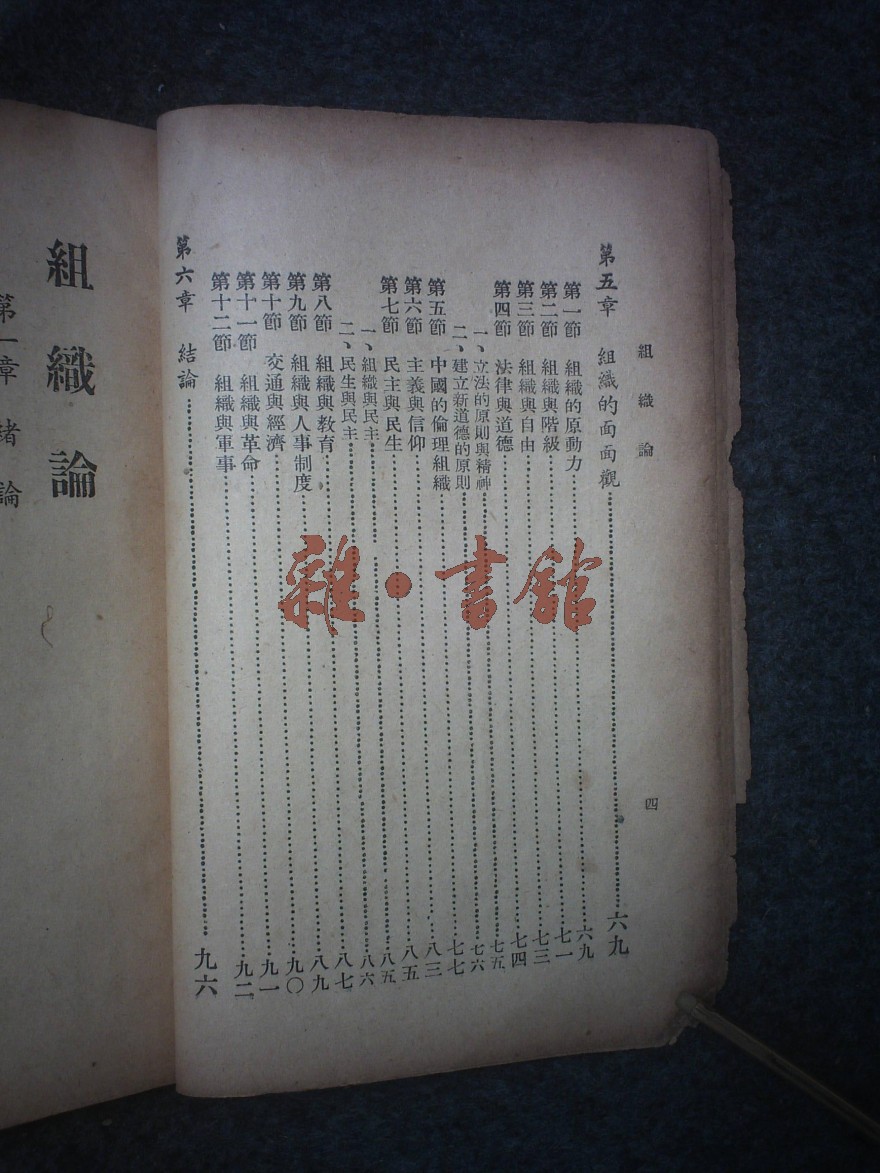 組織論
四
第五章 組織的面面觀……六九
第一節 組織的原動力……六九
第二節 組織與階級……七一
第三節 組織與自由……七三
第四節 法律與道德……七四
一、立法的原則與精神……七五
二、建立新道德的原則……七六
第五節 中國的倫理組織……七七
第六節 主義與信仰……八三
第七節 民主與民生……八五
一、組織與民主……八五
二、民生與民主……八六
第八節 組織與教育……八七
第九節 組織與人事制度……八九
第十節 交通與經濟……九〇
第十一節 組織與革命……九一
第十二節 組織與軍事……九二
第六章 結論……九六
組織論
第一章 緒論
雜·書館